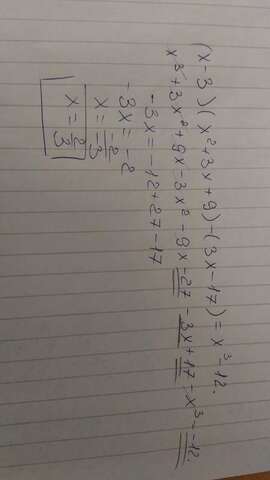 (x-3)(x²+3x+9)-(3x-17)=x³-12.
x³+3x²+9x-3x²-9x-27-3x+17-x³=-12.
-3x=-12+27-17
-3x=-2
x=\frac{-2}{-3}
x=\frac{2}{3}